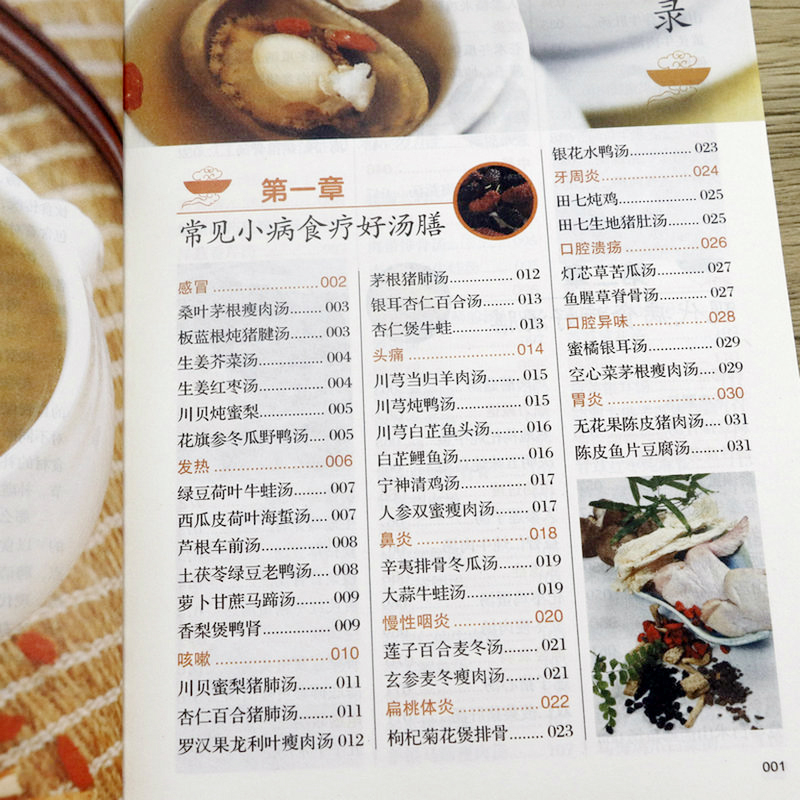 录
第一章
常见小病食疗好汤膳
感冒......................002
桑叶茅根瘦肉汤........003
板蓝根炖猪腱汤........003
生姜芥菜汤..............004
生姜红枣汤..............004
川贝炖蜜梨..............005
花旗参冬瓜野鸭汤....005
发热......................006
绿豆荷叶牛蛙汤........007
西瓜皮荷叶海蜇汤....007
芦根车前汤..............008
土茯苓绿豆老鸭汤....008
萝卜甘蔗马蹄汤........009
香梨煲鸭肾..............009
咳嗽......................010
川贝蜜梨猪肺汤........011
杏仁百合猪肺汤........011
罗汉果龙利叶瘦肉汤 012
茅根猪肺汤..............012
银耳杏仁百合汤........013
杏仁煲牛蛙..............013
头痛......................014
川芎当归羊肉汤........015
川芎炖鸭汤..............015
川芎白芷鱼头汤........016
白芷鲤鱼汤..............016
宁神清鸡汤..............017
人参双蜜瘦肉汤........017
鼻炎......................018
辛夷排骨冬瓜汤........019
大蒜牛蛙汤..............019
慢性咽炎................020
莲子百合麦冬汤........021
玄参麦冬瘦肉汤........021
扁桃体炎................022
枸杞菊花煲排骨........023
银花水鸭汤..............023
牙周炎....................024
田七炖鸡................025
田七生地猪肚汤........025
口腔溃疡................026
灯芯草苦瓜汤..........027
鱼腥草脊骨汤..........027
口腔异味................028
蜜橘银耳汤..............029
空心菜茅根瘦肉汤....029
胃炎......................030
无花果陈皮猪肉汤....031
陈皮鱼片豆腐汤........031
001